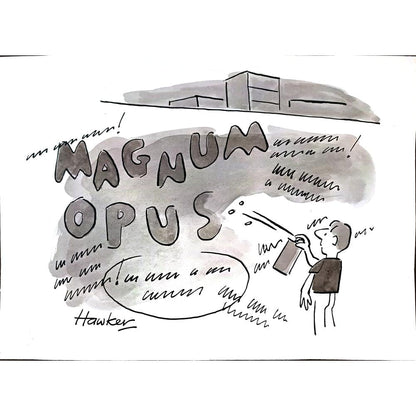 MAGNUM
OPUS
Hawker